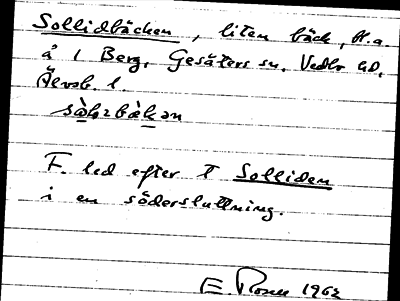 Sollidbäcken, liten bäck, bl.a.
å 1 Berg, Gesäters sn, Vedbo hd,
Älvsb. l.
F. led efter T Solliden
i en södersluttning.
E 1962